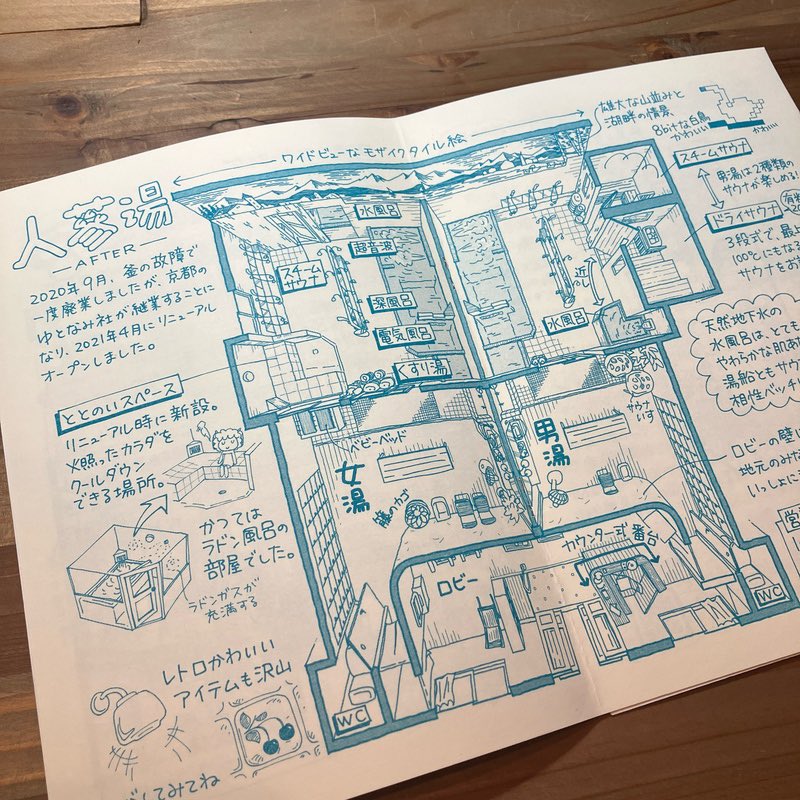 人蔘湯
AFTER
2020年9月、釜の故障で
一度廃業しましたが、京都の
ゆとなみ社が継業することに
なり、2021年4月にリニューアル
オープンしました。
ととのいスペース
リニューアル時に新設。
火照ったカラダを
クールダウン
できる場所。
かつては
ラドン風呂の
部屋でした。
ラドンガスが
充満する
レトロかわいい
アイテムも沢山
してみてね
ワイドビューなモザイクタイル絵
水風呂
超音波
スチーム
サウナ
深風呂
電気風呂
くすり湯
ベビーベッド
女湯
籐のカゴ
ロビー
WC
近い
水風呂
サウナ
いす
男湯
カウンター式番台
WC
雄大な山並みと
湖畔の情景
8bitな白鳥
かわいい
かわいい
スチームサウナ
男湯は2種類の
サウナが楽しめる!
ドライサウナ
3段式で、最
100℃にもなる
サウナをお
天然地下水の
水風呂は、とても
やわらかな肌あ
湯船ともサウ
相性バッチ
ロビーの壁
地元のみな
いっしょに
営